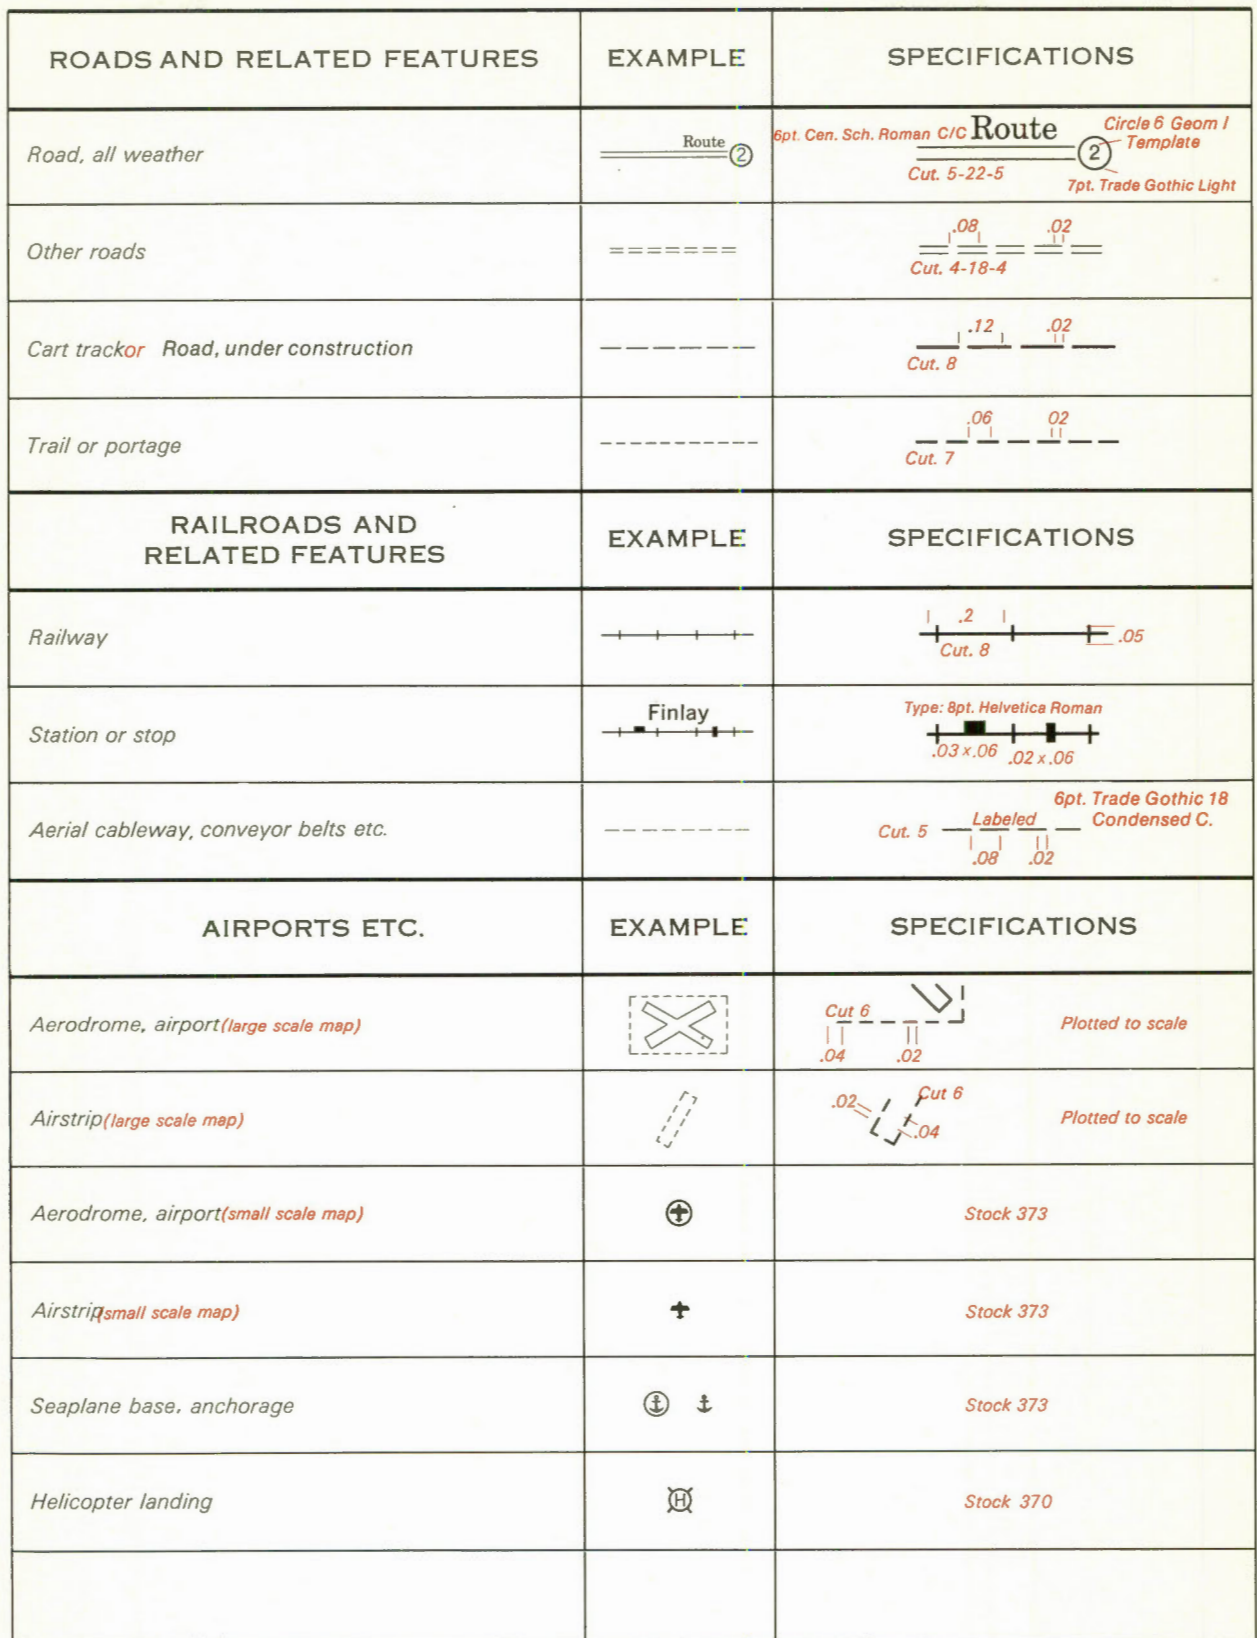 ROADS AND RELATED FEATURES EXAMPLE SPECIFICATIONS
Road, all weather
Route 2
6pt. Cen. Sch. Roman C/C Route 2 Circle 6 Geom I
Template
Cut. 5-22-5
7pt. Trade Gothic Light
Other roads
.08 .02
Cut. 4-18-4
Cart track or Road, under construction
.12 .02
Cut. 8
Trail or portage
.06 02
Cut. 7
RAILROADS AND
RELATED FEATURES
EXAMPLE SPECIFICATIONS
Railway
.2
.05
Cut. 8
Station or stop
Finlay
Type: 8pt. Helvetica Roman
.03 x .06 .02 x .06
Aerial cableway, conveyor belts etc.
6pt. Trade Gothic 18
Condensed C.
Cut. 5 Labeled
.08 .02
AIRPORTS ETC. EXAMPLE SPECIFICATIONS
Aerodrome, airport (large scale map)
Cut 6
.04 .02
Plotted to scale
Airstrip (large scale map)
.02 Cut 6
.04
Plotted to scale
Aerodrome, airport (small scale map) Stock 373
Airstrip (small scale map) Stock 373
Seaplane base, anchorage Stock 373
Helicopter landing H Stock 370